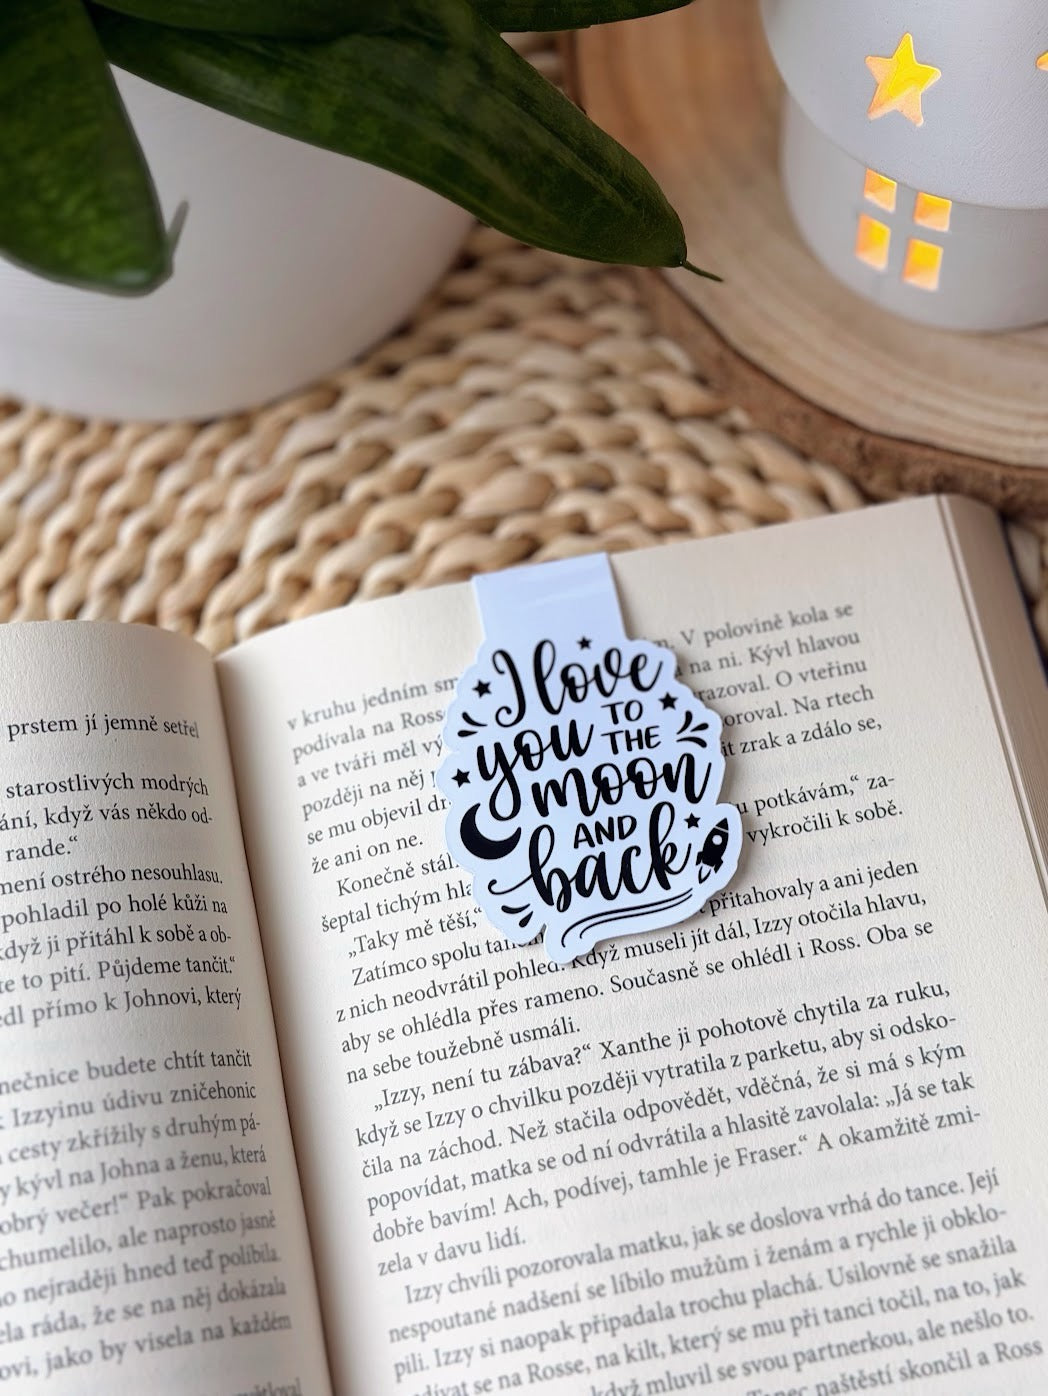 prstem jí jemně setřel
starostlivých modrých
ání, když vás někdo od-
rande.“
mení ostrého nesouhlasu.
pohladil po holé kůži na
když ji přitáhl k sobě a ob-
te to pití. Půjdeme tančit.“
edl přímo k Johnovi, který
nečnice budete chtít tančit
k Izzyinu údivu zničehonic
cesty zkřížily s druhým pá-
y kývl na Johna a ženu, která
obrý večer!“ Pak pokračoval
chumelilo, ale naprosto jasně
ho nejraději hned teď políbila.
ela ráda, že se na něj dokázala
ovi, jako by visela na každém
I love
you TO
THE
moon
AND
back
v kruhu jedním sm m. V polovině kola se
podívala na Ross a na ni. Kývl hlavou
a ve tváři měl vý razoval. O vteřinu
později na něj oroval. Na rtech
se mu objevil dr it zrak a zdálo se,
že ani on ne.
Konečně stál u potkávám,“ za-
šeptal tichým hla vykročili k sobě.
„Taky mě těší,“
Zatímco spolu tan přitahovaly a ani jeden
z nich neodvrátil pohled. Když museli jít dál, Izzy otočila hlavu,
aby se ohlédla přes rameno. Současně se ohlédl i Ross. Oba se
na sebe toužebně usmáli.
„Izzy, není tu zábava?“ Xanthe ji pohotově chytila za ruku,
když se Izzy o chvilku později vytratila z parketu, aby si odsko-
čila na záchod. Než stačila odpovědět, vděčná, že si má s kým
popovídat, matka se od ní odvrátila a hlasitě zavolala: „Já se tak
dobře bavím! Ach, podívej, tamhle je Fraser.“ A okamžitě zmi-
zela v davu lidí.
Izzy chvíli pozorovala matku, jak se doslova vrhá do tance. Její
nespoutané nadšení se líbilo mužům i ženám a rychle ji obklo-
pili. Izzy si naopak připadala trochu plachá. Usilovně se snažila
dívat se na Rosse, na kilt, který se mu při tanci točil, na to, jak
když mluvil se svou partnerkou, ale nešlo to.
Tanec naštěstí skončil a Ross